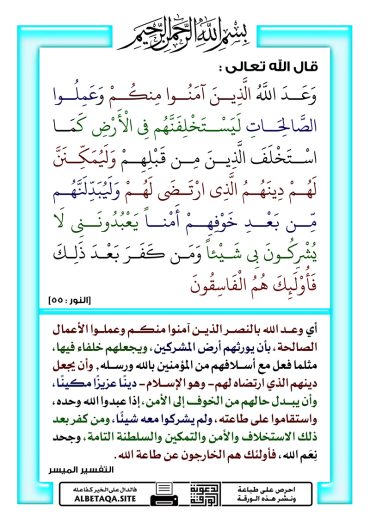 بسم الله الرحمن الرحيم
قال الله تعالى :
وَعَدَ اللَّهُ الَّذِينَ آمَنُوا مِنكُمْ وَعَمِلُوا
الصَّالِحَاتِ لَيَسْتَخْلِفَنَّهُم فِي الْأَرْضِ كَمَا
اسْتَخْلَفَ الَّذِينَ مِن قَبْلِهِمْ وَلَيُمَكِّنَنَّ
لَهُمْ دِينَهُمُ الَّذِي ارْتَضَى لَهُمْ وَلَيُبَدِّلَنَّهُم
مِّن بَعْدِ خَوْفِهِمْ أَمْناً يَعْبُدُونَنِي لَا
يُشْرِكُونَ بِي شَيْئاً وَمَن كَفَرَ بَعْدَ ذَلِكَ
فَأُوْلَئِكَ هُمُ الْفَاسِقُونَ
[النور : ٥٥]
أي وعد الله بالنصر الذين آمنوا منكم وعملوا الأعمال
الصالحة، بأن يورثهم أرض المشركين، ويجعلهم خلفاء فيها،
مثلما فعل مع أسلافهم من المؤمنين بالله ورسله، وأن يجعل
دينهم الذي ارتضاه لهم- وهو الإسلام- دينًا عزيزًا مكينًا،
وأن يبدل حالهم من الخوف إلى الأمن، إذا عبدوا الله وحده،
واستقاموا على طاعته، ولم يشركوا معه شيئًا، ومن كفر بعد
ذلك الاستخلاف والأمن والتمكين والسلطنة التامة، وجحد
نِعَم الله، فأولئك هم الخارجون عن طاعة الله.
التفسير الميسر
احرص على طباعة
ونشر هذه الورقة
دعوية
الورقة
فالدال على الخير كفاعله
ALBETAQA.SITE